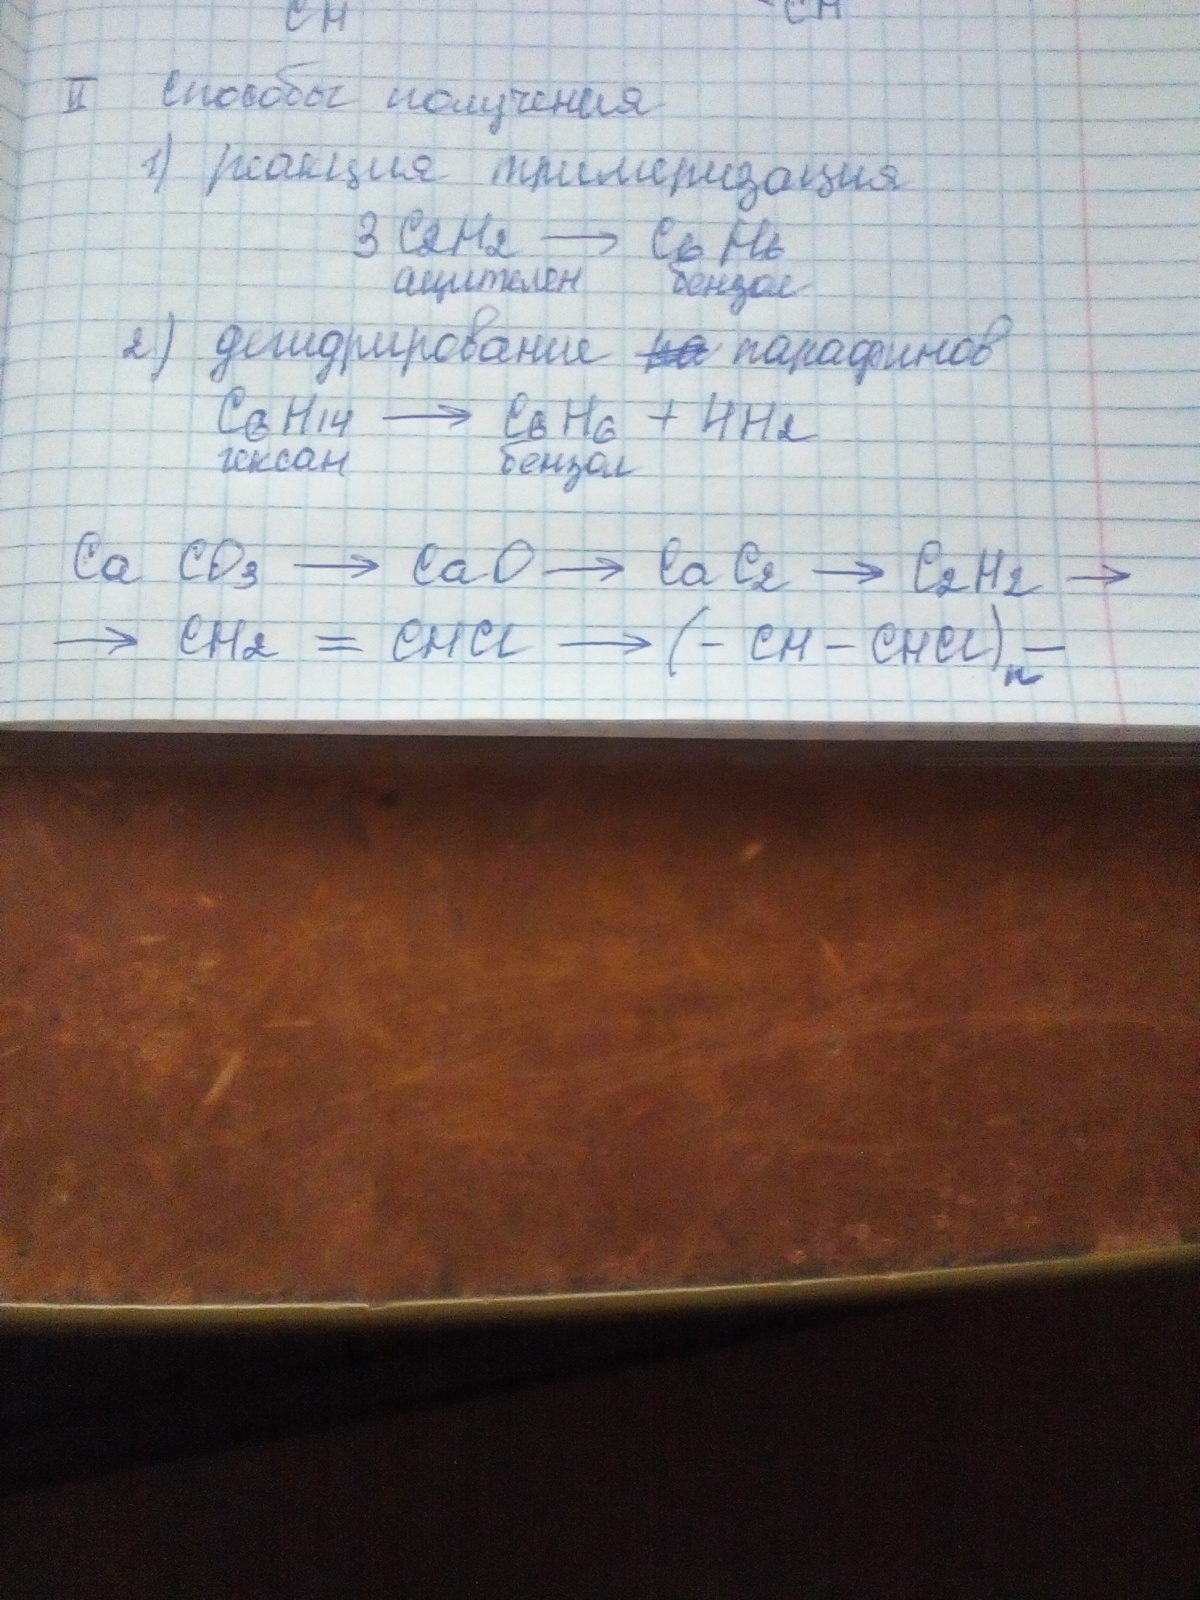 CH CH
II Способы получения
1) реакция тримеризация
3 C2H2 → C6H6
ацителен бензол
2) дегидрирование парафинов
C6H14 → C6H6 + 4H2
гексан бензол
Ca CO3 → CaO → CaC2 → C2H2 →
→ CH2 = CHCl → (- CH - CHCl)n -